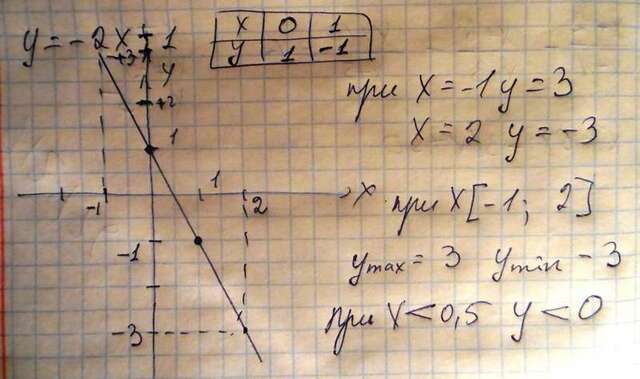 y = -2x + 1
x 0 1
y 1 -1
+3
y
+2
1
1
x
-1
2
-1
-3
при x = -1 y = 3
x = 2 y = -3
при x [-1; 2]
ymax = 3 ymin - 3
при x < 0,5 y < 0